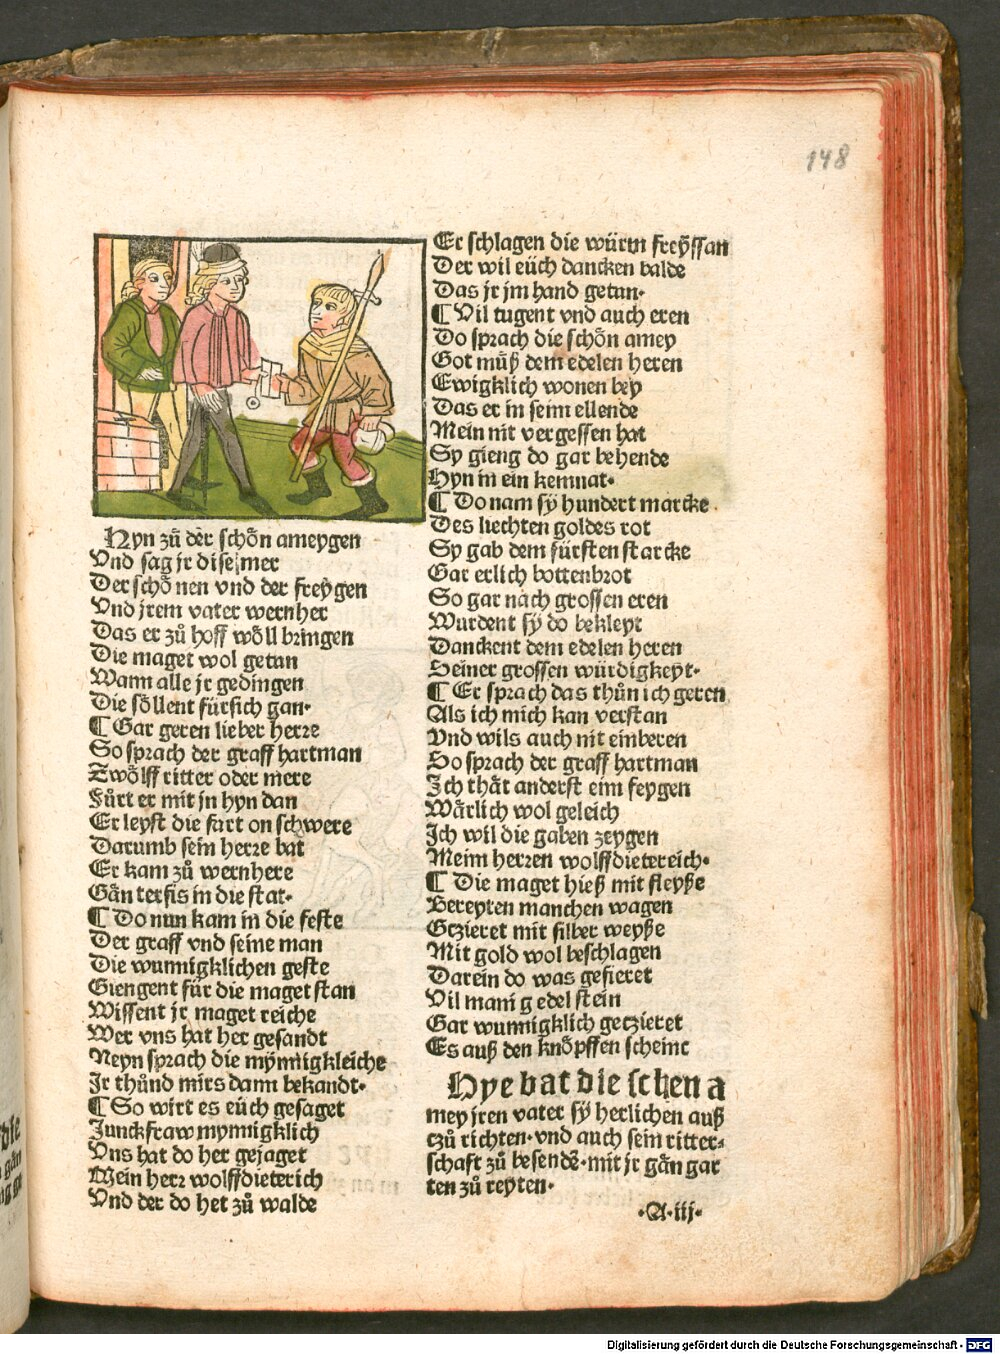 148
Hyn zů der schön ameygen
Vnd sag jr dise mer
Der schönen vnd der freygen
Vnd jrem vater wernher
Das er zů hoff wöll bringen
Die maget wol getan
Wann alle jr gedingen
Die söllent fürsich gan·
¶ Gar geren lieber herre
So sprach der graff hartman
Zwölff ritter oder mere
Fůrt er mit jn hyn dan
Er leyst die fart on schwere
Darumb sein herre bat
Er kam zů wernhere
Gän terfis in die stat·
¶ Do nun kam in die feste
Der graff vnd seine man
Die wunnigklichen geste
Giengent für die maget stan
Wissent jr maget reiche
Wer vns hat her gesandt
Neyn sprach die mynnigkleiche
Jr thůnd mirs dann bekandt·
¶ So wirt es eüch gesaget
Junckfraw mynnigklich
Vns hat do her gejaget
Mein herr wolffdieterich
Vnd der do het zů walde
Er schlagen die würm freyssan
Der wil eüch dancken balde
Das jr jm hand getan·
¶ Vil tugent vnd auch eren
Do sprach die schön amey
Got můß dem edelen heren
Ewigklich wonen bey
Das er in seim ellende
Mein nit vergessen hat
Sy gieng do gar behende
Hyn in ein kemnat·
¶ Do nam sy hundert marcke
Des liechten goldes rot
Sy gab dem fürsten starcke
Gar erlich bottenbrot
So gar nach grossen eren
Wurdent sy do bekleyt
Danckent dem edelen heren
Seiner grossen würdigkeyt·
¶ Er sprach das thůn ich geren
Als ich mich kan verstan
Vnd wils auch nit einberen
So sprach der graff hartman
Ich thät anderst eim feygen
Wärlich wol geleich
Ich wil die gaben zeygen
Meim herren wolffdietereich·
¶ Die maget hieß mit fleyße
Bereyten manchen wagen
Gezieret mit silber weyße
Mit gold wol beschlagen
Darein do was gefieret
Vil manig edel stein
Gar wunnigklich geczieret
Es auß den knöpffen scheint
Hye bat die schen a
mey jren vater sy herlichen auß
czů richten·vnd auch sein ritter⸗
schaft zů besendē·mit jr gän gar
ten zů reyten·
·A·iij·
Digitalisierung gefördert durch die Deutsche Forschungsgemeinschaft - DFG